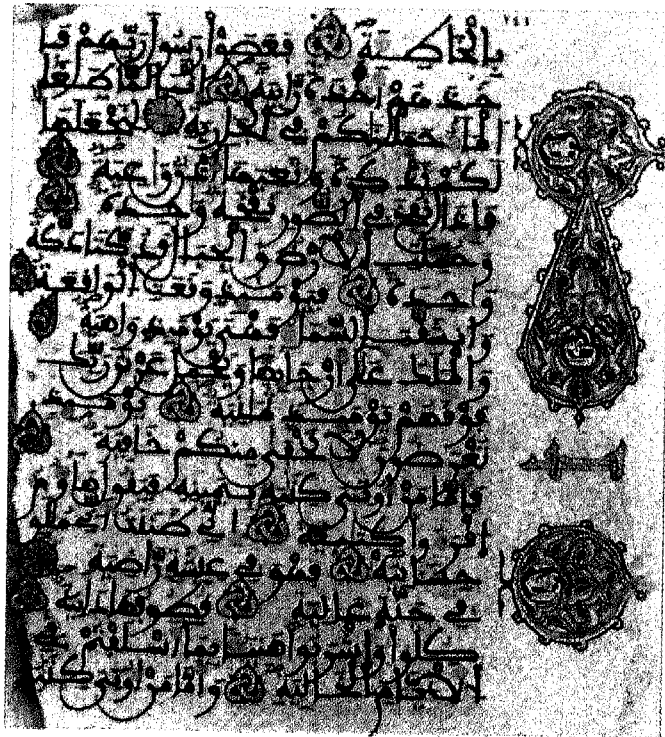 ١٤١
بالخاطية فعصوا رسول ربهم فا
خذهم اخذة رابية انا لما طغا
الما حملنكم في الجارية لنجعلها
لكم تذكرة وتعيها اذن وعية
فاذا نفخ في الصور نفخة وحدة
وحملت الارض والجبال فدكتا دكة
واحدة فيومئذ وقعت الواقعة
وانشقت السما فهي يومئذ واهية
والملك على ارجايها ويحمل عرش ربك
فوقهم يومئذ ثمنية يومئذ
تعرضون لا تخفى منكم خافية
فاما من اوتي كتبه بيمينه فيقول هاوم
اقروا كتبيه اني ظننت اني ملق
حسابيه فهو في عيشة راضية
في جنة عالية قطوفها دانية
كلوا واشربوا هنيا بما اسلفتم في
الايام الخالية واما من اوتي كتبه